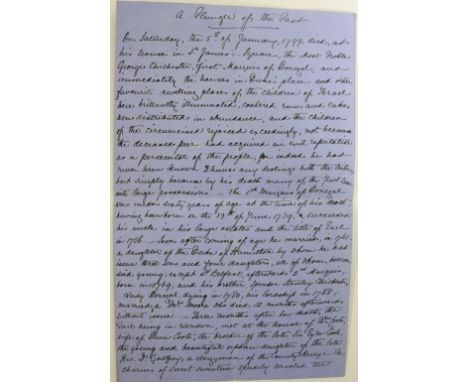 A Plunger of the Past
On Saturday, the 5th of January, 1799, died, at
his house in St James's Square, the Most Noble
George Chichester, first Marquis of Donegal, and
immediately the houses in Duke's place and other
favourite dwelling places of the children of Israel
were brilliantly illuminated, coshered rum and cakes
were distributed in abundance, and the children
of the circumcised rejoiced exceedingly, not because
the deceased peer had acquired an evil reputation
as a persecutor of the people, for indeed he had
never been known to have any dealings with the tribe,
but simply because by his death many of the Jews came
into large possessions. - The 1st Marquis of Donegal
was under sixty years of age at the time of his death
having been born on the 13th of June, 1739, & succeeded
his uncle in his large estates and the title of Earl
in 1756 - Soon after coming of age he married, in 1761
a daughter of the Duke of Hamilton by whom he had
issue three sons and four daughters, all of whom
died young, except Ld Belfast, afterwards 2nd Marquis,
born 1769, and his brother, Spencer Stanley Chichester,
Lady Donegal dying in 1780, his Lordship in 1788
married a Mrs Moore who died 12 months afterwards
without issue - Three months after her death, the
Earl being in London, met at the house of Mrs Coote,
wife of Dean Coote, the brother of the late Sir Eyre Coote,
the young and beautiful orphan daughter of the late
Rev. Dr Godfrey, a clergyman of the County Kerry - The
charms of sweet seventeen speedily erased the